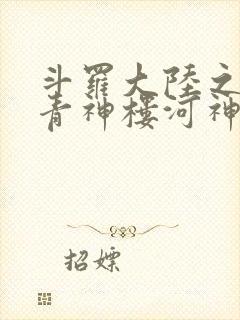 斗羅大陸之
青神樓河神
招嫖